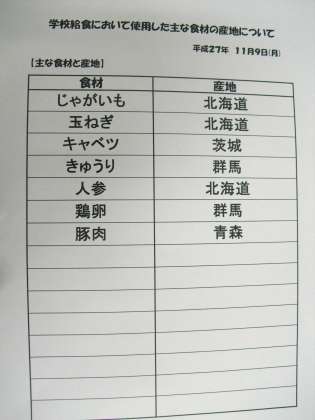 学校給食において使用した主な食材の産地について
平成27年 11月9日(月)
【主な食材と産地】
食材 産地
じゃがいも 北海道
玉ねぎ 北海道
キャベツ 茨城
きゅうり 群馬
人参 北海道
鶏卵 群馬
豚肉 青森